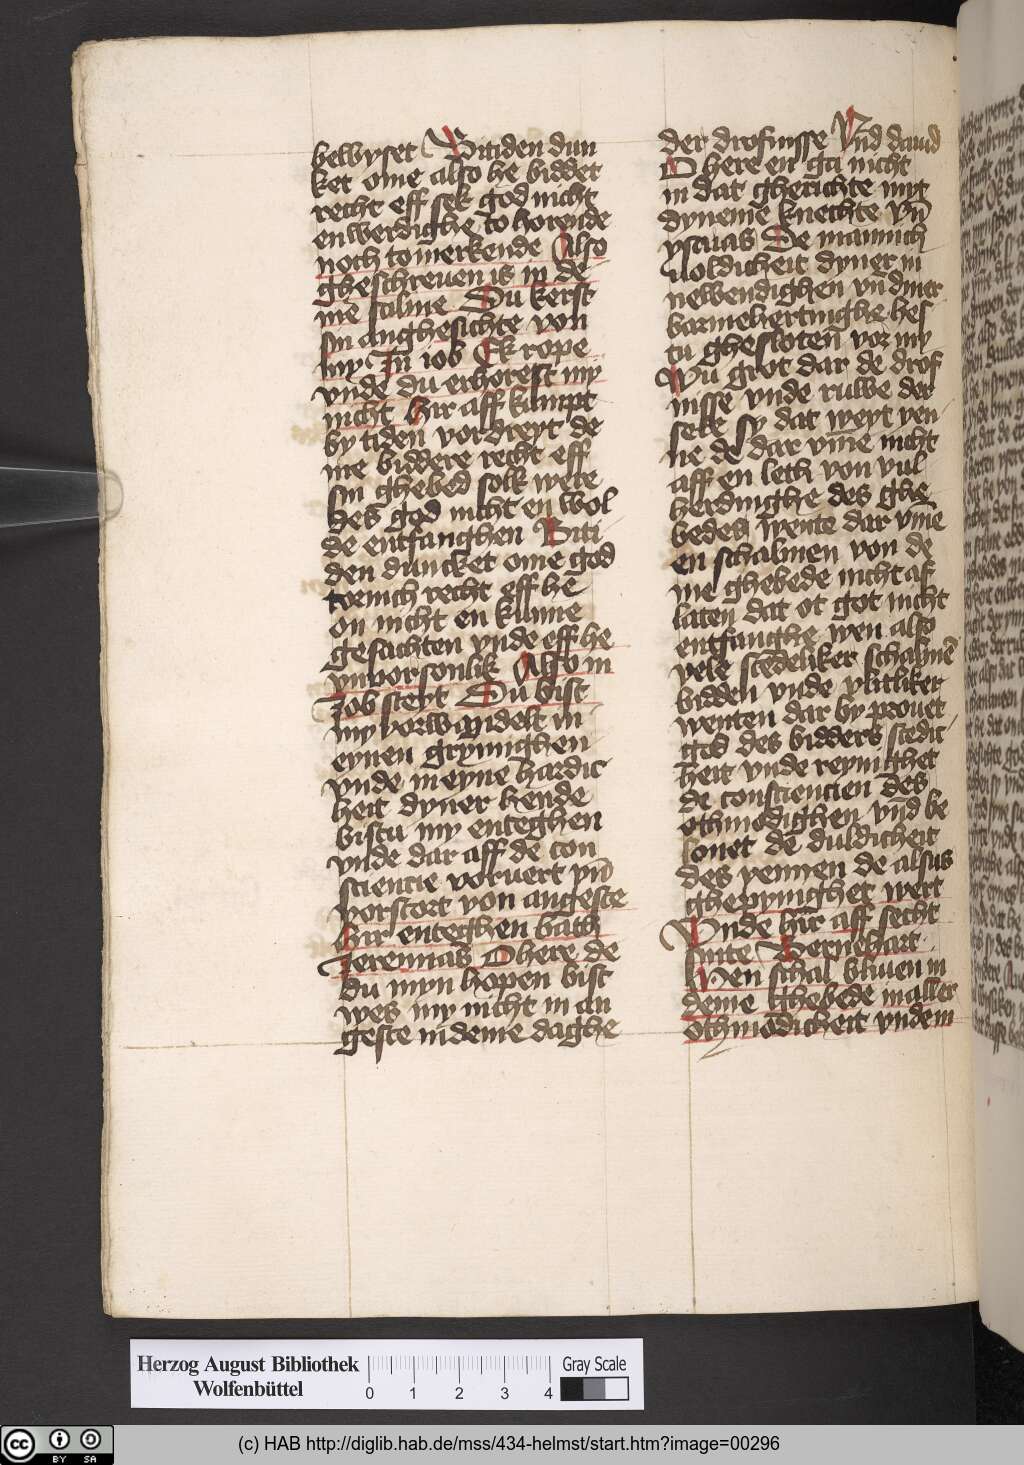 bewyset Bitiden dun
ket ome also he biddet
recht eff sek god nicht
enwerdighe to horende
noch to merkende Also
gheschreuen is in de
me salme Du kerst
din anghesichte von
my In iob Ek rope
vnde du erhorest my
nicht Hir aff kumpt
by tiden vordreyt de
me biddere recht eff
sin ghebed solk were
des god nicht en wol
de entfanghen Biti
den duncket ome god
toenich recht eff he
on nicht en kunne
gesachten vnde eff he
vnvorsonlik Also in
Job steyt Du bist
my vorwandelt in
eynen grymmighen
vnde in eyne hardic
heit dyner hende
bistu my enteghen
vnde dar aff de con
sciencie voruert vnd
vorstort von angeste
hir enteghen bath
Jeremias O here de
du myn hopen bist
wes my nicht in an
geste in deme daghe
der drofnisse Vnd dauid
O here en ga nicht
in dat gherichte myt
dyneme knechte Vn̄
ysaias De mannich
uoldicheit dyner in
newendighen vn diner
barmehertinghe hes
tu ghesloten vor my
Wu grot dar de drof
nisse vnde ruwe der
sele sy dat weyt yen
ne de dar vm̄e nicht
aff en leth von vul
herdinghe des ghe
bedes wente dar vm̄e
en schalmen von de
me ghebede nicht af
laten dat ot got nicht
entfanghe wen also
vele stedeliker schalmē
bidden vnde vlitliker
wenten dar by prouet
god des bidders stedic
heit vnde reynichet
de consciencien des
othmodighen vn̄d be
lonet de duldicheit
des yennen de alsus
ghepynighet wert
Vnde hir aff secht
sunte Bernehart
Men schal bliuen in
deme ghebede in aller
othmodicheit vnde in
Herzog August Bibliothek
Wolfenbüttel
0 1 2 3 4
Gray Scale
cc BY SA
(c) HAB http://diglib.hab.de/mss/434-helmst/start.htm?image=00296